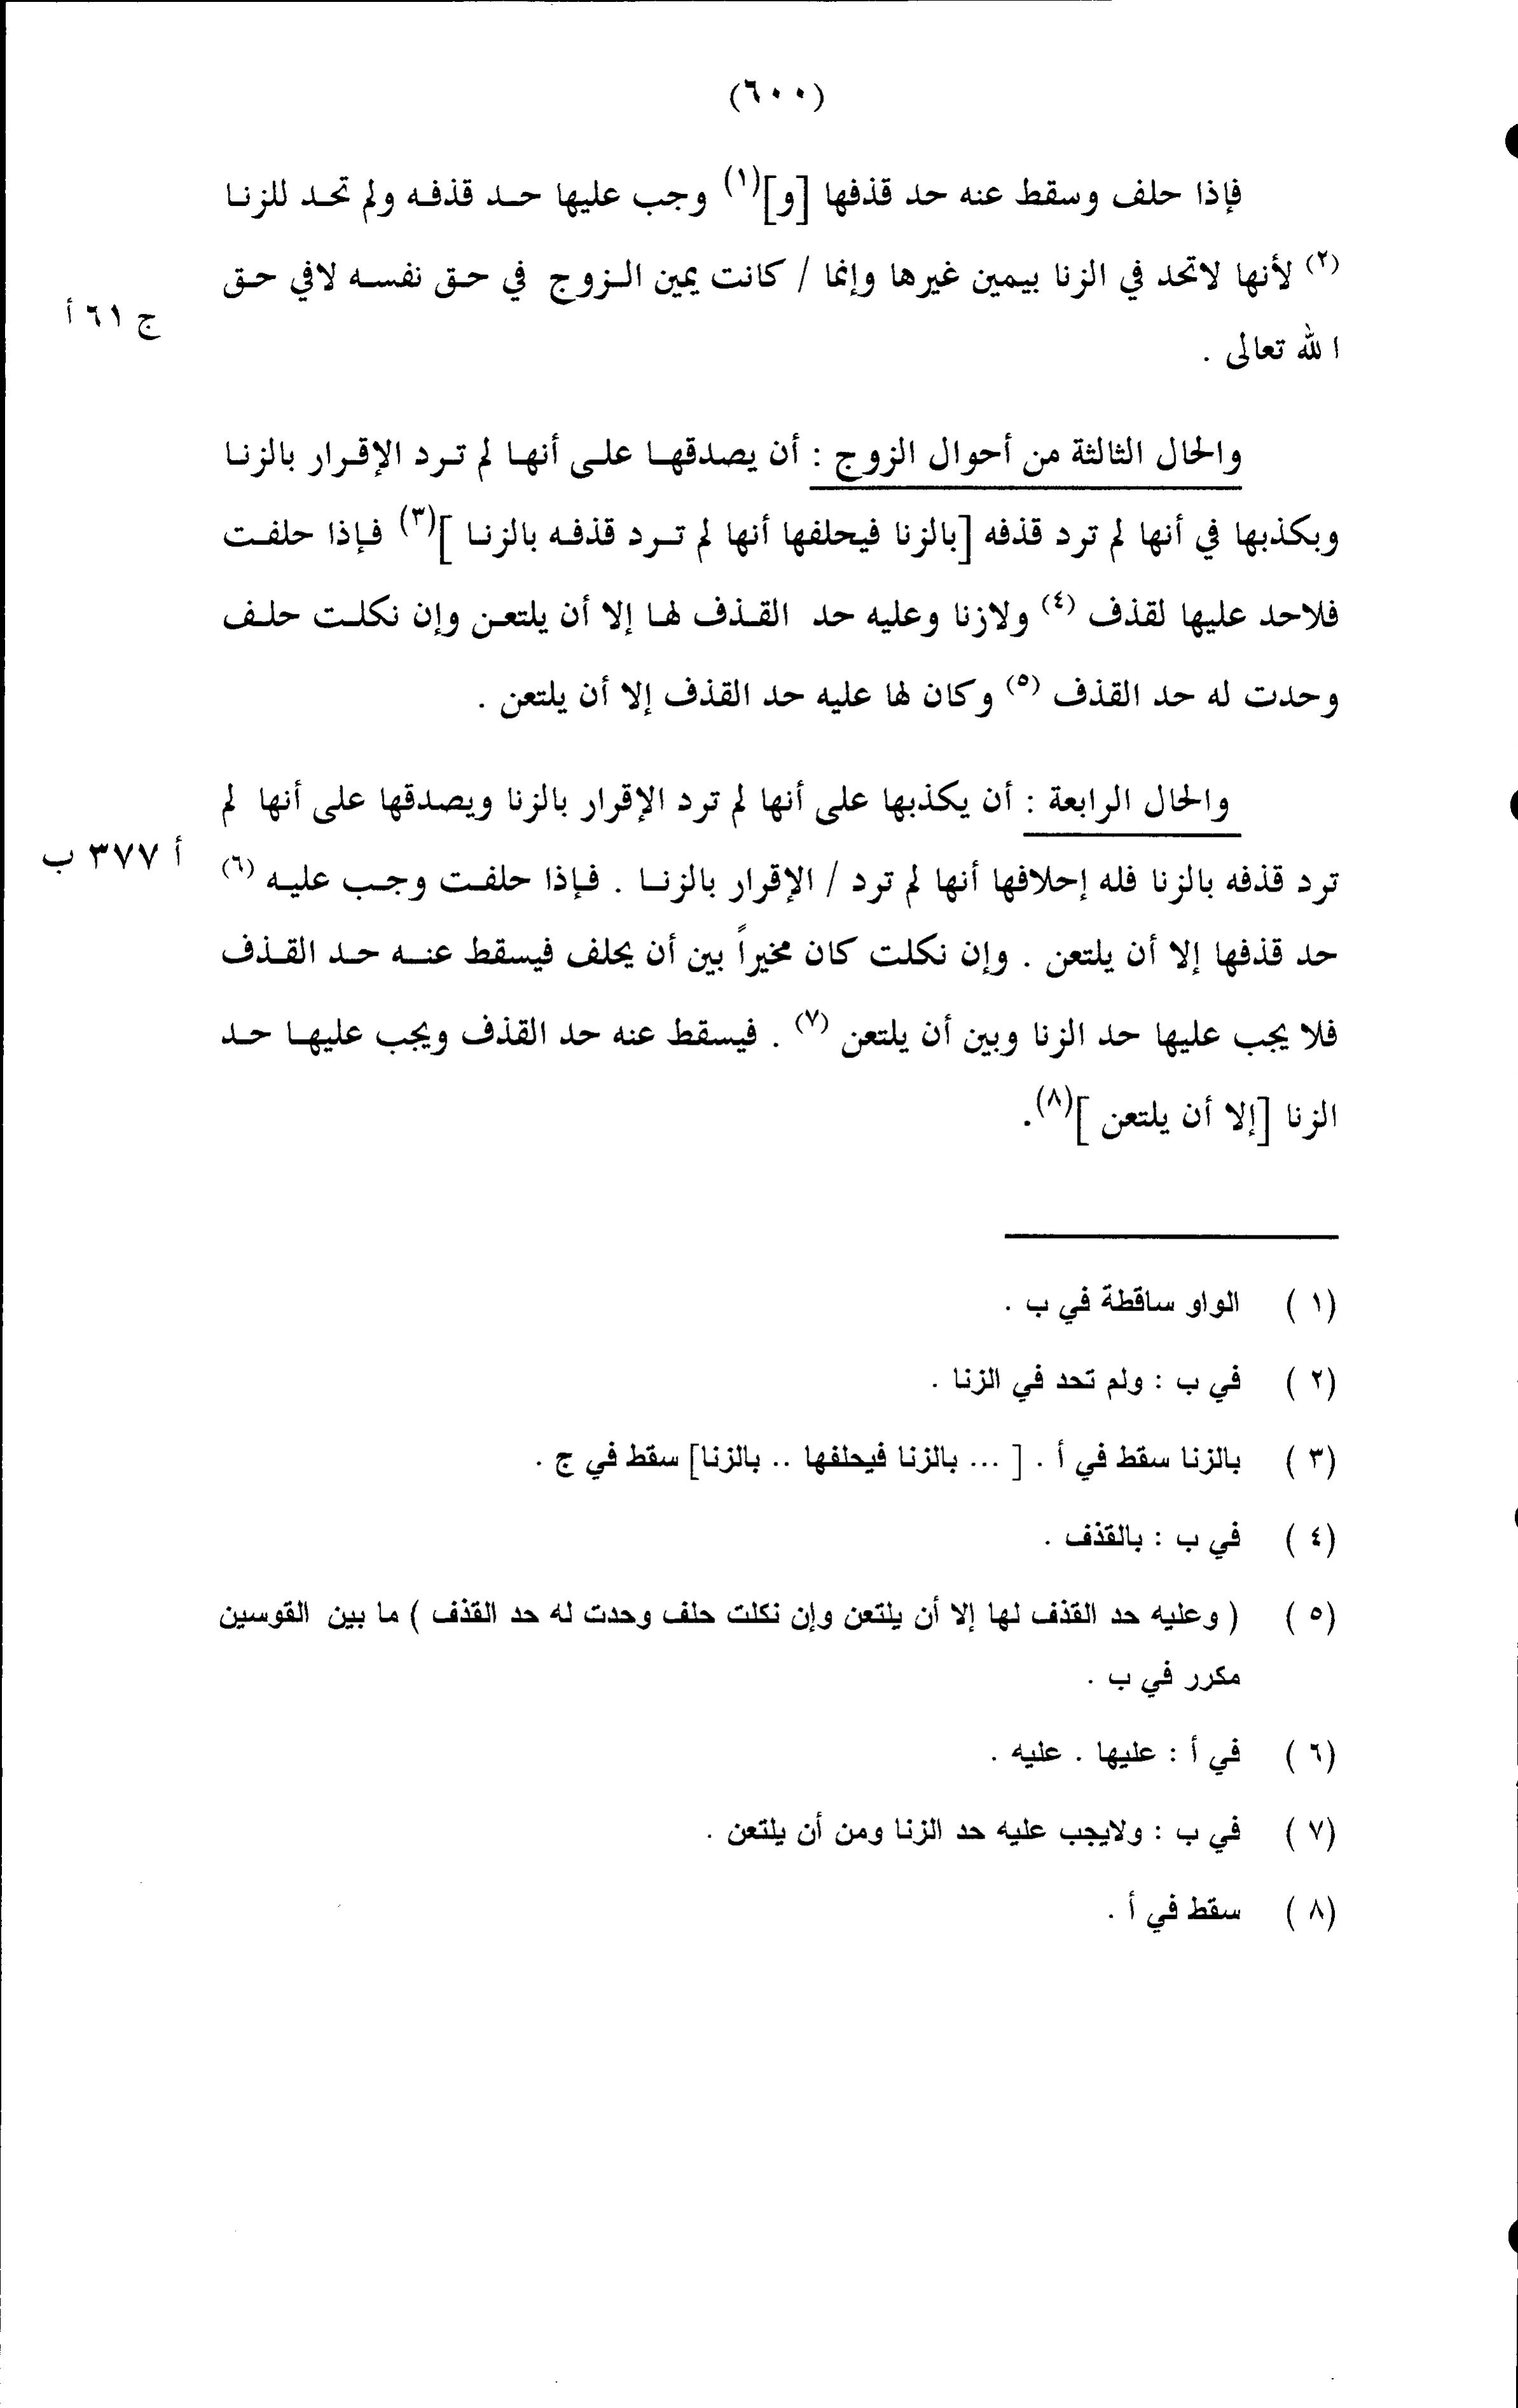 (٦٠٠)
فإذا حلف وسقط عنه حد قذفها [و](١) وجب عليها حد قذفه ولم تحد للزنا
(٢) لأنها لاتحد في الزنا بيمين غيرها وإنما / كانت يمين الزوج في حق نفسه لافي حق
ج ٦١ أ
الله تعالى .
والحال الثالثة من أحوال الزوج : أن يصدقها على أنها لم ترد الإقرار بالزنا
وبكذبها في أنها لم ترد قذفه [بالزنا فيحلفها أنها لم ترد قذفه بالزنا ](٣) فإذا حلفت
فلاحد عليها لقذف (٤) ولازنا وعليه حد القذف لها إلا أن يلتعن وإن نكلت حلف
وحدت له حد القذف (٥) وكان لها عليه حد القذف إلا أن يلتعن .
والحال الرابعة : أن يكذبها على أنها لم ترد الإقرار بالزنا ويصدقها على أنها لم
أ ٣٧٧ ب
ترد قذفه بالزنا فله إحلافها أنها لم ترد / الإقرار بالزنا . فإذا حلفت وجب عليه (٦)
حد قذفها إلا أن يلتعن . وإن نكلت كان مخيراً بين أن يحلف فيسقط عنه حد القذف
فلا يجب عليها حد الزنا وبين أن يلتعن (٧) . فيسقط عنه حد القذف ويجب عليها حد
الزنا [إلا أن يلتعن ](٨).
(١) الواو ساقطة في ب .
(٢) في ب : ولم تحد في الزنا .
(٣) بالزنا سقط في أ . [ ... بالزنا فيحلفها .. بالزنا] سقط في ج .
(٤) في ب : بالقذف .
(٥) ( وعليه حد القذف لها إلا أن يلتعن وإن نكلت حلف وحدت له حد القذف ) ما بين القوسين
مكرر في ب .
(٦) في أ : عليها . عليه .
(٧) في ب : ولايجب عليه حد الزنا ومن أن يلتعن .
(٨) سقط في أ .